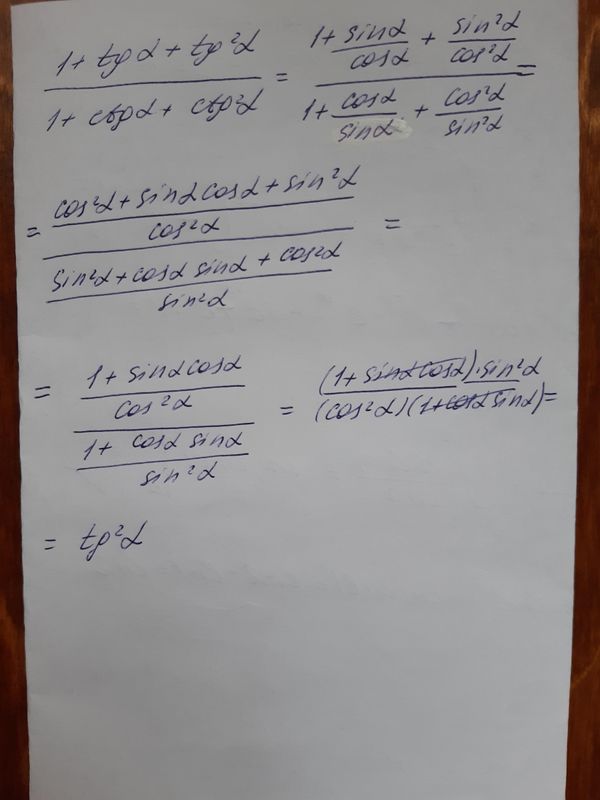 (1 + tg α + tg²α)/(1 + ctg α + ctg²α) = (1 + sin α/cos α + sin²α/cos²α)/(1 + cos α/sin α + cos²α/sin²α) =
= ((cos²α + sin α cos α + sin²α)/cos²α)/((sin²α + cos α sin α + cos²α)/sin²α) =
= ((1 + sin α cos α)/cos²α)/((1 + cos α sin α)/sin²α) = ((1 + sin α cos α) · sin²α)/((cos²α)(1 + cos α sin α)) =
= tg²α